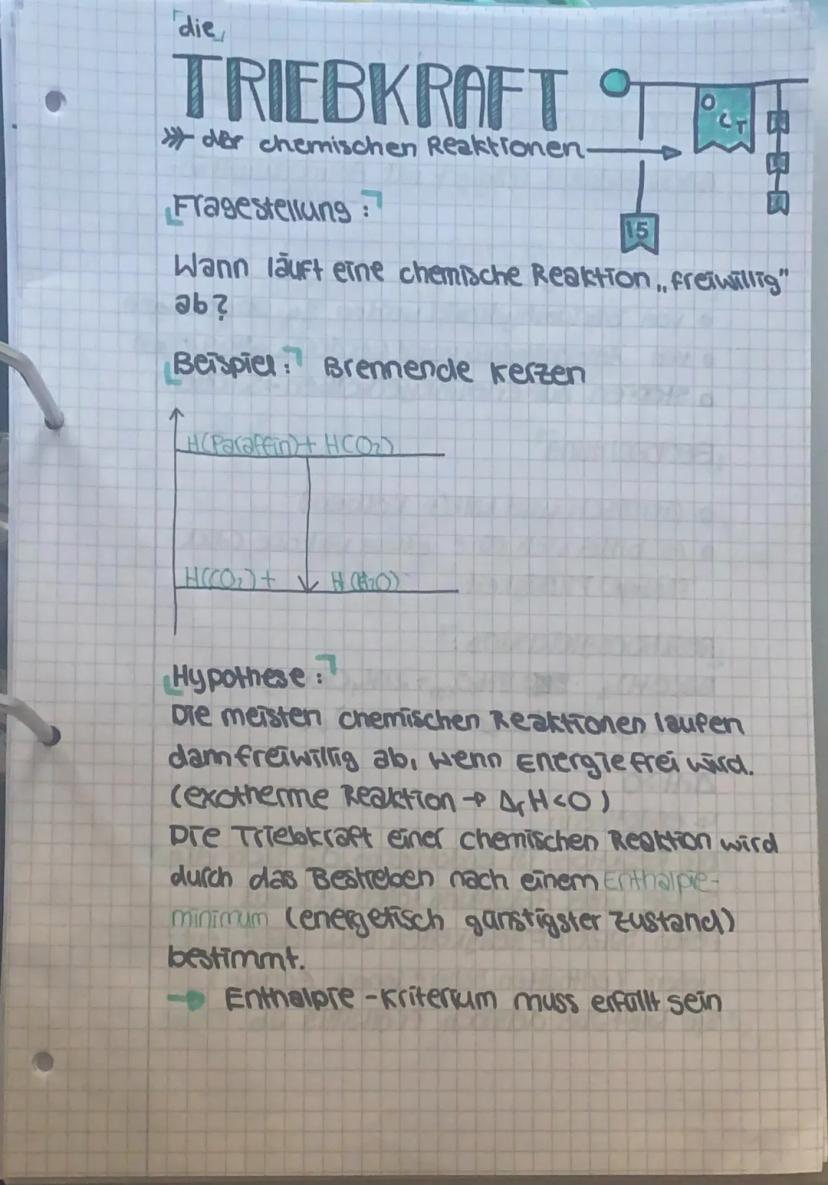 die
TRIEBKRAFT
der chemischen Reaktionen
OCT
15
Fragestellung:
Wann läuft eine chemische Reaktion „freiwillig"
ab?
Beispiel: Brennende Kerzen
H(Paraffin)+ H(O₂)
H(CO₂)+ H(H₂O)
Hypothese:
Die meisten chemischen Reaktionen laufen
dann freiwillig ab, wenn Energie frei wird.
(exotherme Reaktion → ΔrH<0)
Die Triebkraft einer chemischen Reaktion wird
durch das Bestreben nach einem Enthalpie-
minimum (energetisch günstigster Zustand)
bestimmt.
→ Enthalpie-Kriterium muss erfüllt sein